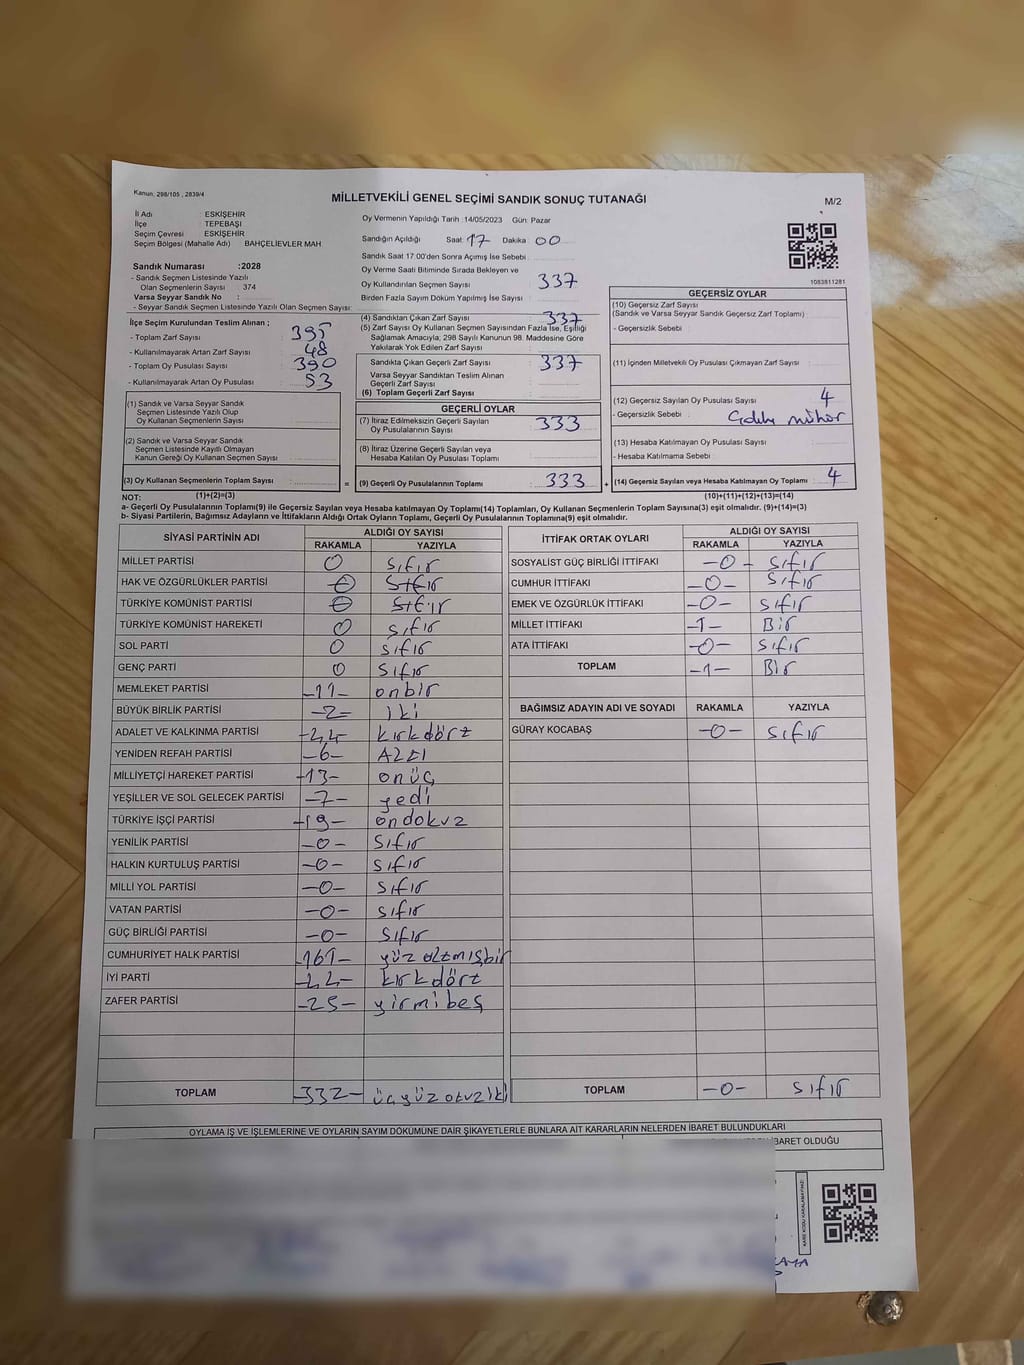 Kanun: 298/105 , 2839/4
MİLLETVEKİLİ GENEL SEÇİMİ SANDIK SONUÇ TUTANAĞI
M/2
İl Adı ESKİŞEHİR
İlçe TEPEBAŞI
Seçim Çevresi ESKİŞEHİR
Seçim Bölgesi (Mahalle Adı) BAHÇELİEVLER MAH
Sandık Numarası :2028
- Sandık Seçmen Listesinde Yazılı
Olan Seçmenlerin Sayısı : 374
Varsa Seyyar Sandık No :
- Seyyar Sandık Seçmen Listesinde Yazılı Olan Seçmen Sayısı:
Oy Vermenin Yapıldığı Tarih :14/05/2023 Gün: Pazar
Sandığın Açıldığı Saat: 17 Dakika: 00
Sandık Saat 17:00'den Sonra Açımış İse Sebebi :
Oy Verme Saati Bitiminde Sırada Bekleyen ve
Oy Kullandırılan Seçmen Sayısı : 337
Birden Fazla Sayım Döküm Yapılmış İse Sayısı :
1083811281
İlçe Seçim Kurulundan Teslim Alınan ;
- Toplam Zarf Sayısı : 395
- Kullanılmayarak Artan Zarf Sayısı : 48
- Toplam Oy Pusulası Sayısı : 390
- Kullanılmayarak Artan Oy Pusulası : 53
(1) Sandık ve Varsa Seyyar Sandık
Seçmen Listesinde Yazılı Olup
Oy Kullanan Seçmenlerin Sayısı :
(2) Sandık ve Varsa Seyyar Sandık
Seçmen Listesinde Kayıtlı Olmayan
Kanun Gereği Oy Kullanan Seçmen Sayısı :
(3) Oy Kullanan Seçmenlerin Toplam Sayısı :
(4) Sandıktan Çıkan Zarf Sayısı : 337
(5) Zarf Sayısı Oy Kullanan Seçmen Sayısından Fazla İse, Eşitliği
Sağlamak Amacıyla, 298 Sayılı Kanunun 98. Maddesine Göre
Yakılarak Yok Edilen Zarf Sayısı :
Sandıkta Çıkan Geçerli Zarf Sayısı : 337
Varsa Seyyar Sandıktan Teslim Alınan
Geçerli Zarf Sayısı :
(6) Toplam Geçerli Zarf Sayısı :
GEÇERLİ OYLAR
(7) İtiraz Edilmeksizin Geçerli Sayılan
Oy Pusulalarının Sayısı : 333
(8) İtiraz Üzerine Geçerli Sayılan veya
Hesaba Katılan Oy Pusulası Toplamı :
= (9) Geçerli Oy Pusulalarının Toplamı : 333 +
GEÇERSİZ OYLAR
(10) Geçersiz Zarf Sayısı
(Sandık ve Varsa Seyyar Sandık Geçersiz Zarf Toplamı) :
- Geçersizlik Sebebi :
(11) İçinden Milletvekili Oy Pusulası Çıkmayan Zarf Sayısı :
(12) Geçersiz Sayılan Oy Pusulası Sayısı : 4
- Geçersizlik Sebebi : Çoklu mühür
(13) Hesaba Katılmayan Oy Pusulası Sayısı :
- Hesaba Katılmama Sebebi :
(14) Geçersiz Sayılan veya Hesaba Katılmayan Oy Toplamı : 4
NOT: (1)+(2)=(3) (10)+(11)+(12)+(13)=(14)
a- Geçerli Oy Pusulalarının Toplamı(9) ile Geçersiz Sayılan veya Hesaba katılmayan Oy Toplamı(14) Toplamları, Oy Kullanan Seçmenlerin Toplam Sayısına(3) eşit olmalıdır. (9)+(14)=(3)
b- Siyasi Partilerin, Bağımsız Adayların ve İttifakların Aldığı Ortak Oyların Toplamı, Geçerli Oy Pusulalarının Toplamına(9) eşit olmalıdır.
SİYASİ PARTİNİN ADI ALDIĞI OY SAYISI
RAKAMLA YAZIYLA
MİLLET PARTİSİ 0 sıfır
HAK VE ÖZGÜRLÜKLER PARTİSİ 0 sıfır
TÜRKİYE KOMÜNİST PARTİSİ 0 sıfır
TÜRKİYE KOMÜNİST HAREKETİ 0 sıfır
SOL PARTİ 0 sıfır
GENÇ PARTİ 0 sıfır
MEMLEKET PARTİSİ -11- onbir
BÜYÜK BİRLİK PARTİSİ -2- iki
ADALET VE KALKINMA PARTİSİ -44- kırkdört
YENİDEN REFAH PARTİSİ -6- Altı
MİLLİYETÇİ HAREKET PARTİSİ -13- onüç
YEŞİLLER VE SOL GELECEK PARTİSİ -7- yedi
TÜRKİYE İŞÇİ PARTİSİ -19- ondokuz
YENİLİK PARTİSİ -0- sıfır
HALKIN KURTULUŞ PARTİSİ -0- sıfır
MİLLİ YOL PARTİSİ -0- sıfır
VATAN PARTİSİ -0- sıfır
GÜÇ BİRLİĞİ PARTİSİ -0- sıfır
CUMHURİYET HALK PARTİSİ -161- yüzaltmışbir
İYİ PARTİ -44- kırkdört
ZAFER PARTİSİ -25- yirmibeş
TOPLAM -332- üçyüzotuziki
İTTİFAK ORTAK OYLARI ALDIĞI OY SAYISI
RAKAMLA YAZIYLA
SOSYALİST GÜÇ BİRLİĞİ İTTİFAKI -0- sıfır
CUMHUR İTTİFAKI -0- sıfır
EMEK VE ÖZGÜRLÜK İTTİFAKI -0- sıfır
MİLLET İTTİFAKI -1- Bir
ATA İTTİFAKI -0- sıfır
TOPLAM -1- Bir
BAĞIMSIZ ADAYIN ADI VE SOYADI RAKAMLA YAZIYLA
GÜRAY KOCABAŞ -0- sıfır
TOPLAM -0- sıfır
OYLAMA İŞ VE İŞLEMLERİNE VE OYLARIN SAYIM DÖKÜMÜNE DAİR ŞİKAYETLERLE BUNLARA AİT KARARLARIN NELERDEN İBARET BULUNDUKLARI
İBARET OLDUĞU